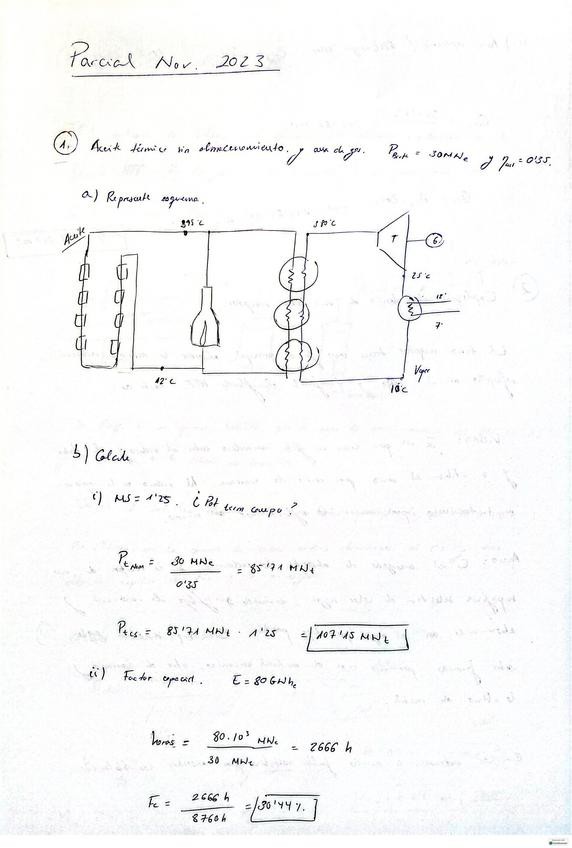 Parcial Nov. 2023
1. Aceite térmico sin almacenamiento. y de gas. P = 30 MWe y η = 0'35.
a) Represente esquema.
Aceite
395°C
380°C
T
G
25°C
12°C
7°
Vapor
10°C
b) Calcule
i) MS = 1'25. ¿Pot term campo?
Pt Nom = 30 MWe / 0'35 = 85'71 MWt
Ptcs = 85'71 MWt · 1'25 = 107'15 MWt
ii) Factor capacid. E = 80 GWhe
horas = 80·10³ MWe / 30 MWe = 2666 h
Fc = 2666 h / 8760 h = 30'44 %.